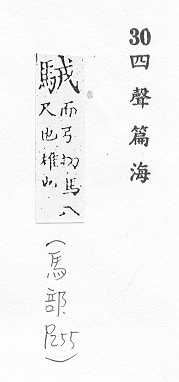 30四聲篇海
駥
而弓切馬八
尺也雄也
(馬部P255)